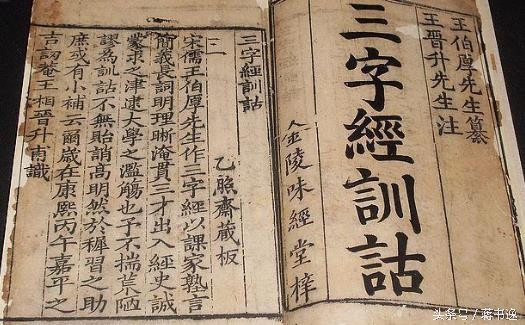 王伯厚先生纂
王晉升先生注
三字經訓詁
金陵味經堂梓
三字經訓詁
乙照齋藏板
宋儒王伯厚先生作三字經以課家塾言
簡義長詞明理晰淹貫三才出入經史誠
蒙求之津逮大學之濫觴也予不揣荒陋
謬為訓詁不無貽誚高明然於穉習之助
庶或有小補云爾歲在康熙丙午嘉平之
吉訒菴王相晉升甫識
头条号 / 蒋书逸